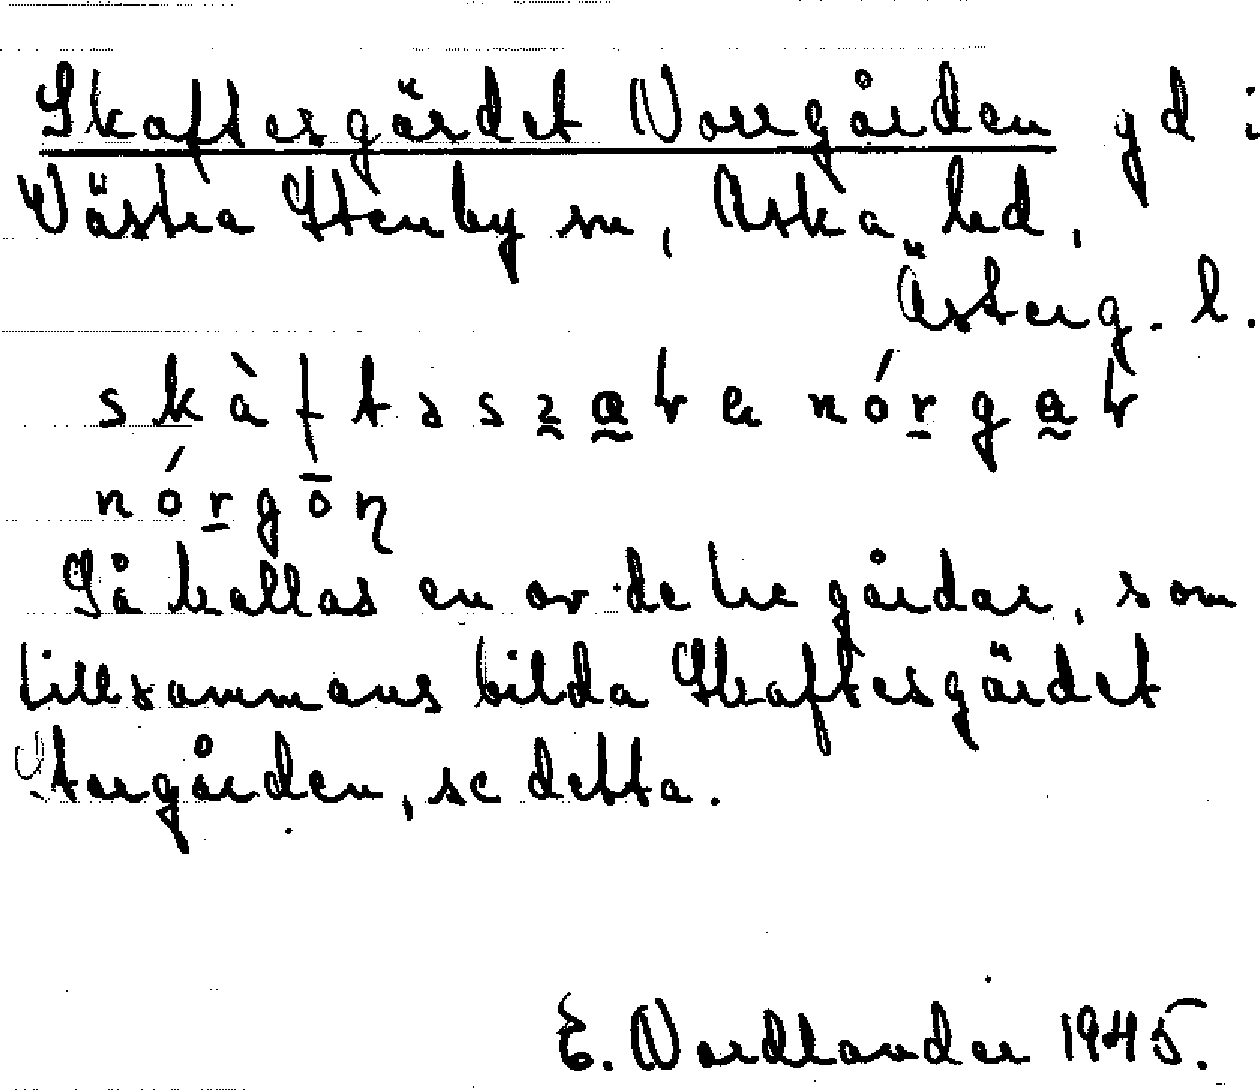 Skaftesgärdet Norrgården gd i
Västra Stenby sn, Aska hd,
Österg. l.
nórgōn
Så kallas en av de tre gårdar, som
tillsammans bilda Skaftesgärdet
Storgården, se detta.
E. Nordlander 1945.